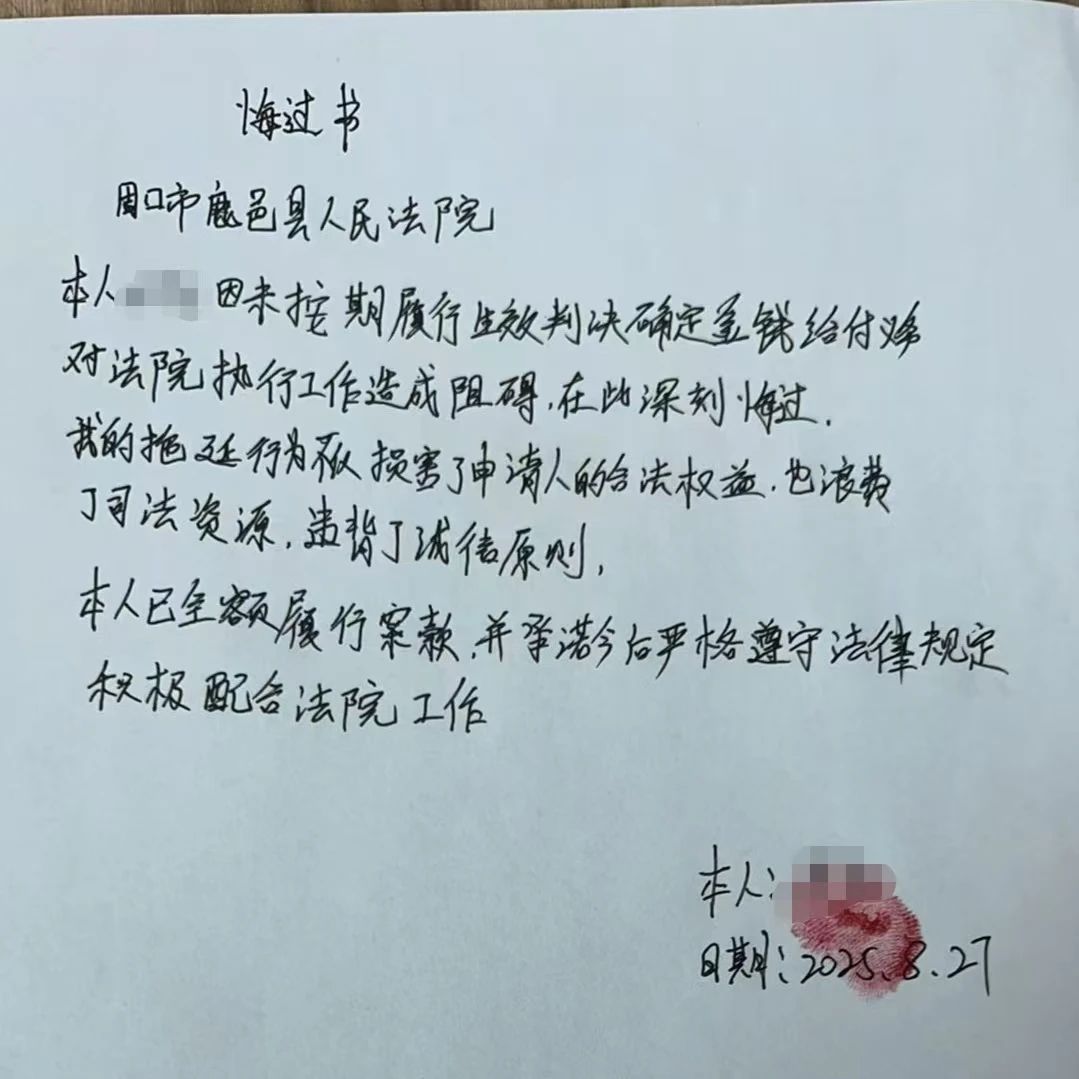 悔过书
周口市鹿邑县人民法院
本人 因未按期履行生效判决确定金钱给付义务
对法院执行工作造成阻碍,在此深刻悔过.
我的拖延行为不仅损害了申请人的合法权益.也浪费
了司法资源,违背了诚信原则,
本人已全额履行案款,并承诺今后严格遵守法律规定
积极配合法院工作
本人:
日期:2025.8.27